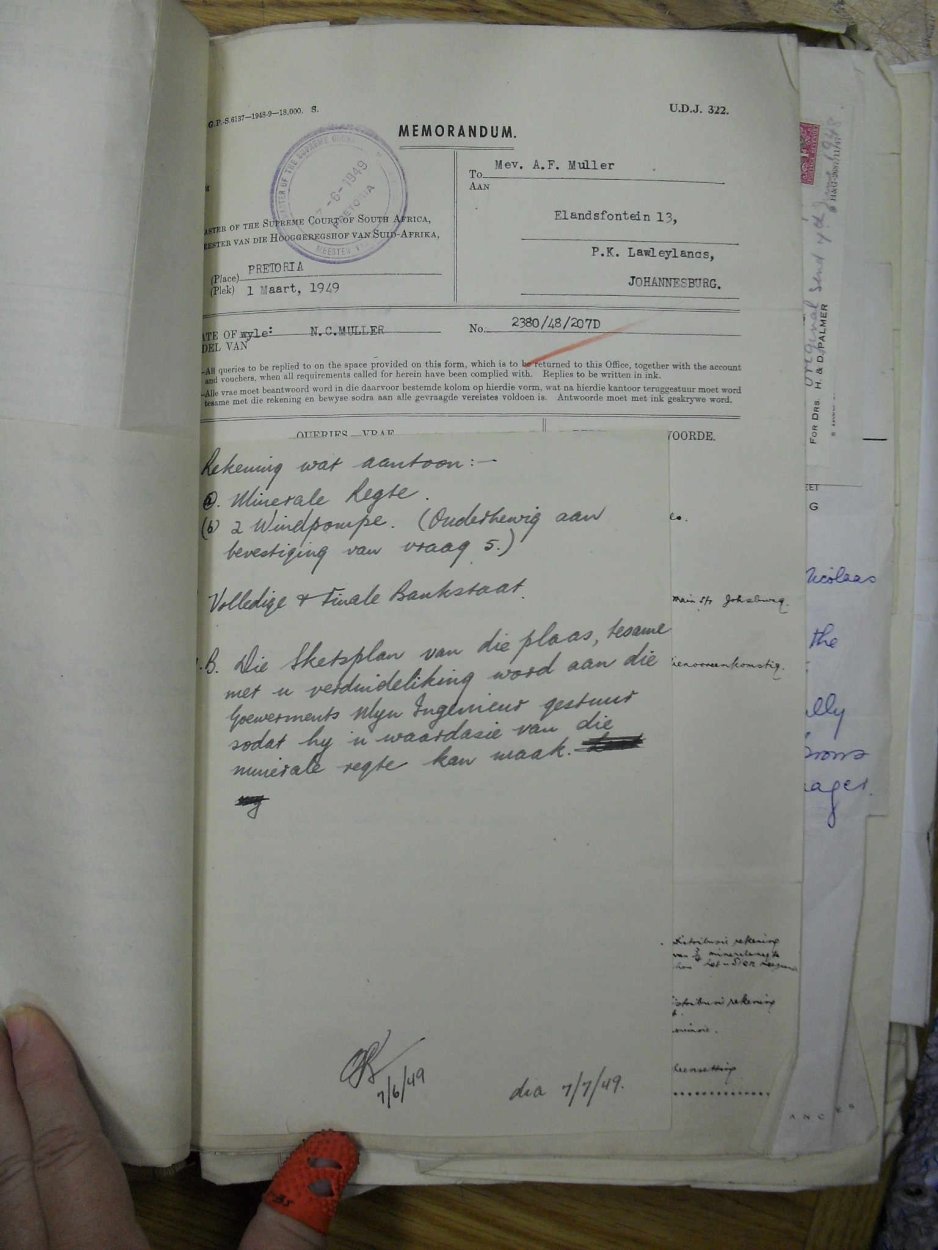 G.P.-S.6137—1948-9—18,000. S.
U.D.J. 322.
MEMORANDUM.
MASTER OF THE SUPREME
-6-1949
PRETORIA
MEESTER
To Mev. A.F. Muller
AAN
Elandsfontein 13,
P.K. Lawleylands,
JOHANNESBURG.
ASTER OF THE SUPREME COURT OF SOUTH AFRICA,
EESTER VAN DIE HOOGGEREGSHOF VAN SUID-AFRIKA,
(Place) PRETORIA
(Plek) 1 Maart, 1949
ATE OF wyle: N.C.MULLER
DEL VAN
No. 2380/48/207D
—All queries to be replied to on the space provided on this form, which is to be returned to this Office, together with the account
and vouchers, when all requirements called for herein have been complied with. Replies to be written in ink.
—Alle vrae moet beantwoord word in die daarvoor bestemde kolom op hierdie vorm, wat na hierdie kantoor teruggestuur moet word
tesame met die rekening en bewyse sodra aan alle gevraagde vereistes voldoen is. Antwoorde moet met ink geskrywe word.
QUERIES—VRAE
WOORDE.
Rekening wat aantoon:—
(a). Minerale Regte.
(b) 2 Windpompe. (Onderhewig aan
bevestiging van vraag 5.)
Volledige + Finale Bankstaat.
B. Die Sketsplan van die plaas, tesame
met 'n verduideliking word aan die
Goewerments Myn Ingenieur gestuur
sodat hy 'n waardasie van die
minerale regte kan maak.
7/6/49
dia 7/7/49.
Main St. Johsburg.
ienooreenkomstig.
distribusie rekening
distribusie rekening
original send 7th June 1948
FOR DRS. H. & D. PALMER
EET
G
Nicolaas
the
lly
rons
ager.
ANCES